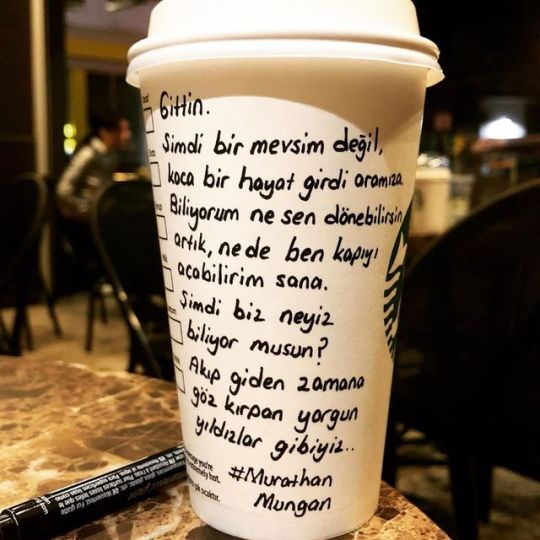 Gittin.
Şimdi bir mevsim değil,
koca bir hayat girdi aramıza.
Biliyorum ne sen dönebilirsin
artık, nede ben kapıyı
açabilirim sana.
Şimdi biz neyiz
biliyor musun?
Akıp giden zamana
göz kırpan yorgun
yıldızlar gibiyiz..
#Murathan
Mungan